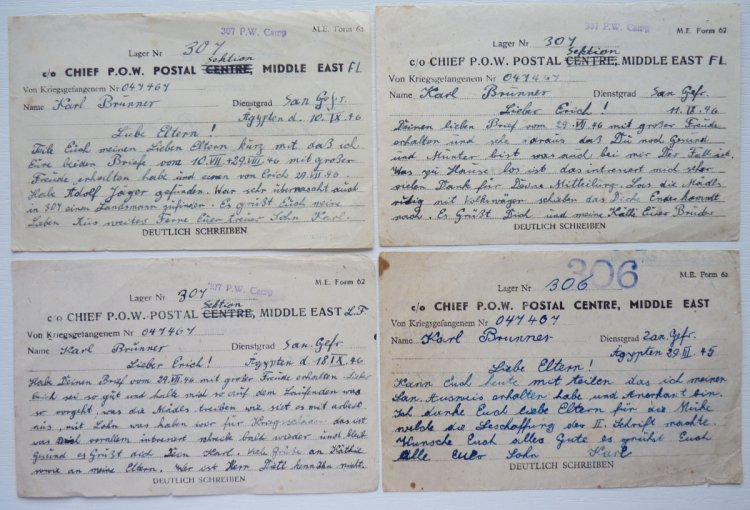 307 P.W. Camp
M.E. Form 62
Lager Nr 307
Sektion
c/o CHIEF P.O.W. POSTAL CENTRE, MIDDLE EAST FL
Von Kriegsgefangenem Nr 047467
Name Karl Brünner Dienstgrad San. Gefr.
Ägypten d. 10.IX.46
Liebe Eltern!
Teile Euch meinen Lieben Eltern kurz mit daß ich
Eure beiden Briefe vom 10.VII.+29.VII.46 mit großer
Freude erhalten habe und einen von Erich 29.VII.46
Habe Adolf Jäger gefunden. War sehr überrascht auch
in 307 einen Landsmann zufinden. Es grüßt Euch meine
Lieben Aus weiter Ferne Euer treuer Sohn Karl.
DEUTLICH SCHREIBEN
307 P.W. Camp
M.E. Form 62
Lager Nr 307
Sektion
c/o CHIEF P.O.W. POSTAL CENTRE, MIDDLE EAST FL
Von Kriegsgefangenem Nr 047467
Name Karl Brünner Dienstgrad San. Gefr.
Lieber Erich! 11.IX.46
Deinen lieben Brief vom 29.VII.46 mit großer Freude
erhalten und sehe daraus daß Du noch Gesund
und Munter bist was auch bei mir Der Fall ist.
Was zu Hause los ist das intressiert mich sehr
vielen Dank für Deine Mitteilung. Las die Mädls
ruhig mit Volkswagen schieben das Dicke Ende kommt
nach. Es Grüßt Dich und meine Käthi Euer Bruder
DEUTLICH SCHREIBEN
307 P.W. Camp
M.E. Form 62
Lager Nr 307
Sektion
c/o CHIEF P.O.W. POSTAL CENTRE, MIDDLE EAST
Von Kriegsgefangenem Nr 047467
Name Karl Brünner Dienstgrad San. Gefr.
Lieber Erich! Ägypten d. 18.IX.46
Habe Deinen Brief vom 29.VII.46 mit großer Freude erhalten
sei so gut und halte mich so auf dem Laufenden was
so vorgeht, was die Mädls treiben wie sieht es mit arbeit
aus, mit Lohn was haben wir für Kriegsschaden das ist
was mich vorallem intressiert schreib bald wieder und bleib
Gesund es Grüßt dich Dein Karl. Viele Grüße an Käthie
sowie an meine Eltern. Wer ist Herr kenn ihn nicht.
DEUTLICH SCHREIBEN
306
M.E. Form 62
Lager Nr 306
c/o CHIEF P.O.W. POSTAL CENTRE, MIDDLE EAST
Von Kriegsgefangenem Nr 047467
Name Karl Brunner Dienstgrad San. Gefr.
Ägypten 29.III.45
Liebe Eltern!
Kann Euch heute mit teilen das ich meinen
San. Ausweis erhalten habe und Anerkant bin.
Ich danke Euch liebe Eltern für die Mühe
welche die Beschaffung des II. Schrift machte.
Wünsche Euch alles Gute es grüßt Euch
alle Euer Sohn Karl
DEUTLICH SCHREIBEN